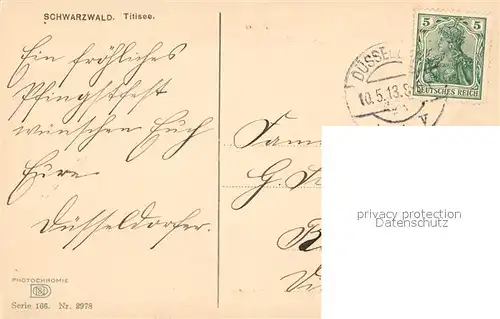 SCHWARZWALD. Titisee.
Ein fröhliches
Pfingstfest
wünschen Euch
Eure
Düsseldorfer.
PHOTOCHROMIE
Serie 166. Nr. 2978
5 5
DEUTSCHES REICH
DÜSSEL
10.5.13.8
V
Fam
G.
privacy protection
Datenschutz